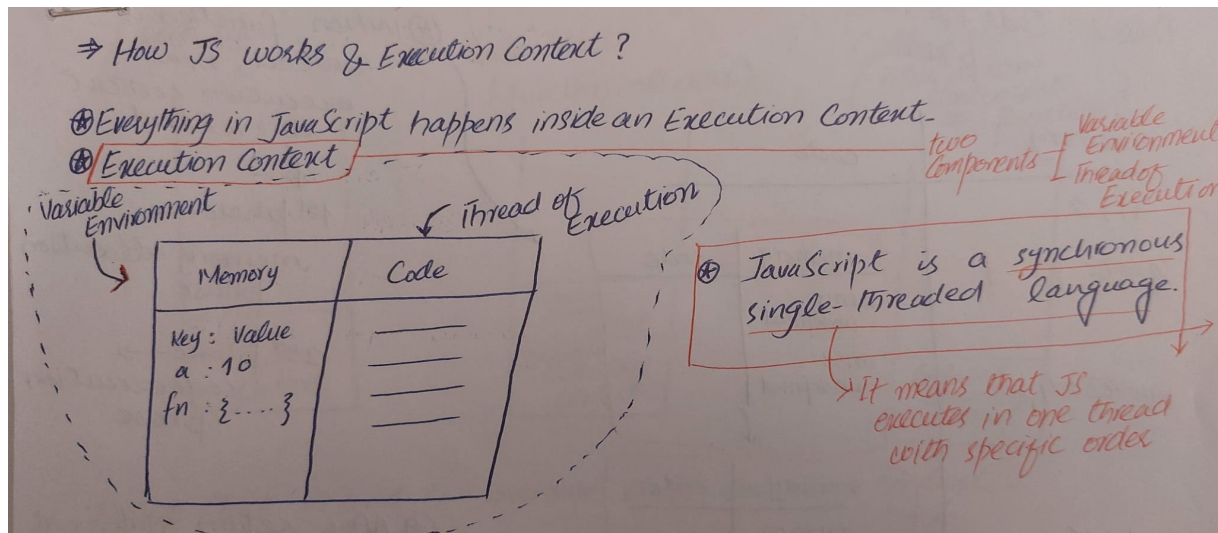 ⇒ How JS works & Execution Context ?
Everything in JavaScript happens inside an Execution Context.
Execution Context
two
Components
Variable
Environment
Thread of
Execution
Variable
Environment
Thread of
Execution
Memory
Code
Key : Value
a : 10
fn : {.....}
JavaScript is a synchronous
single-threaded language.
It means that JS
executes in one thread
with specific order